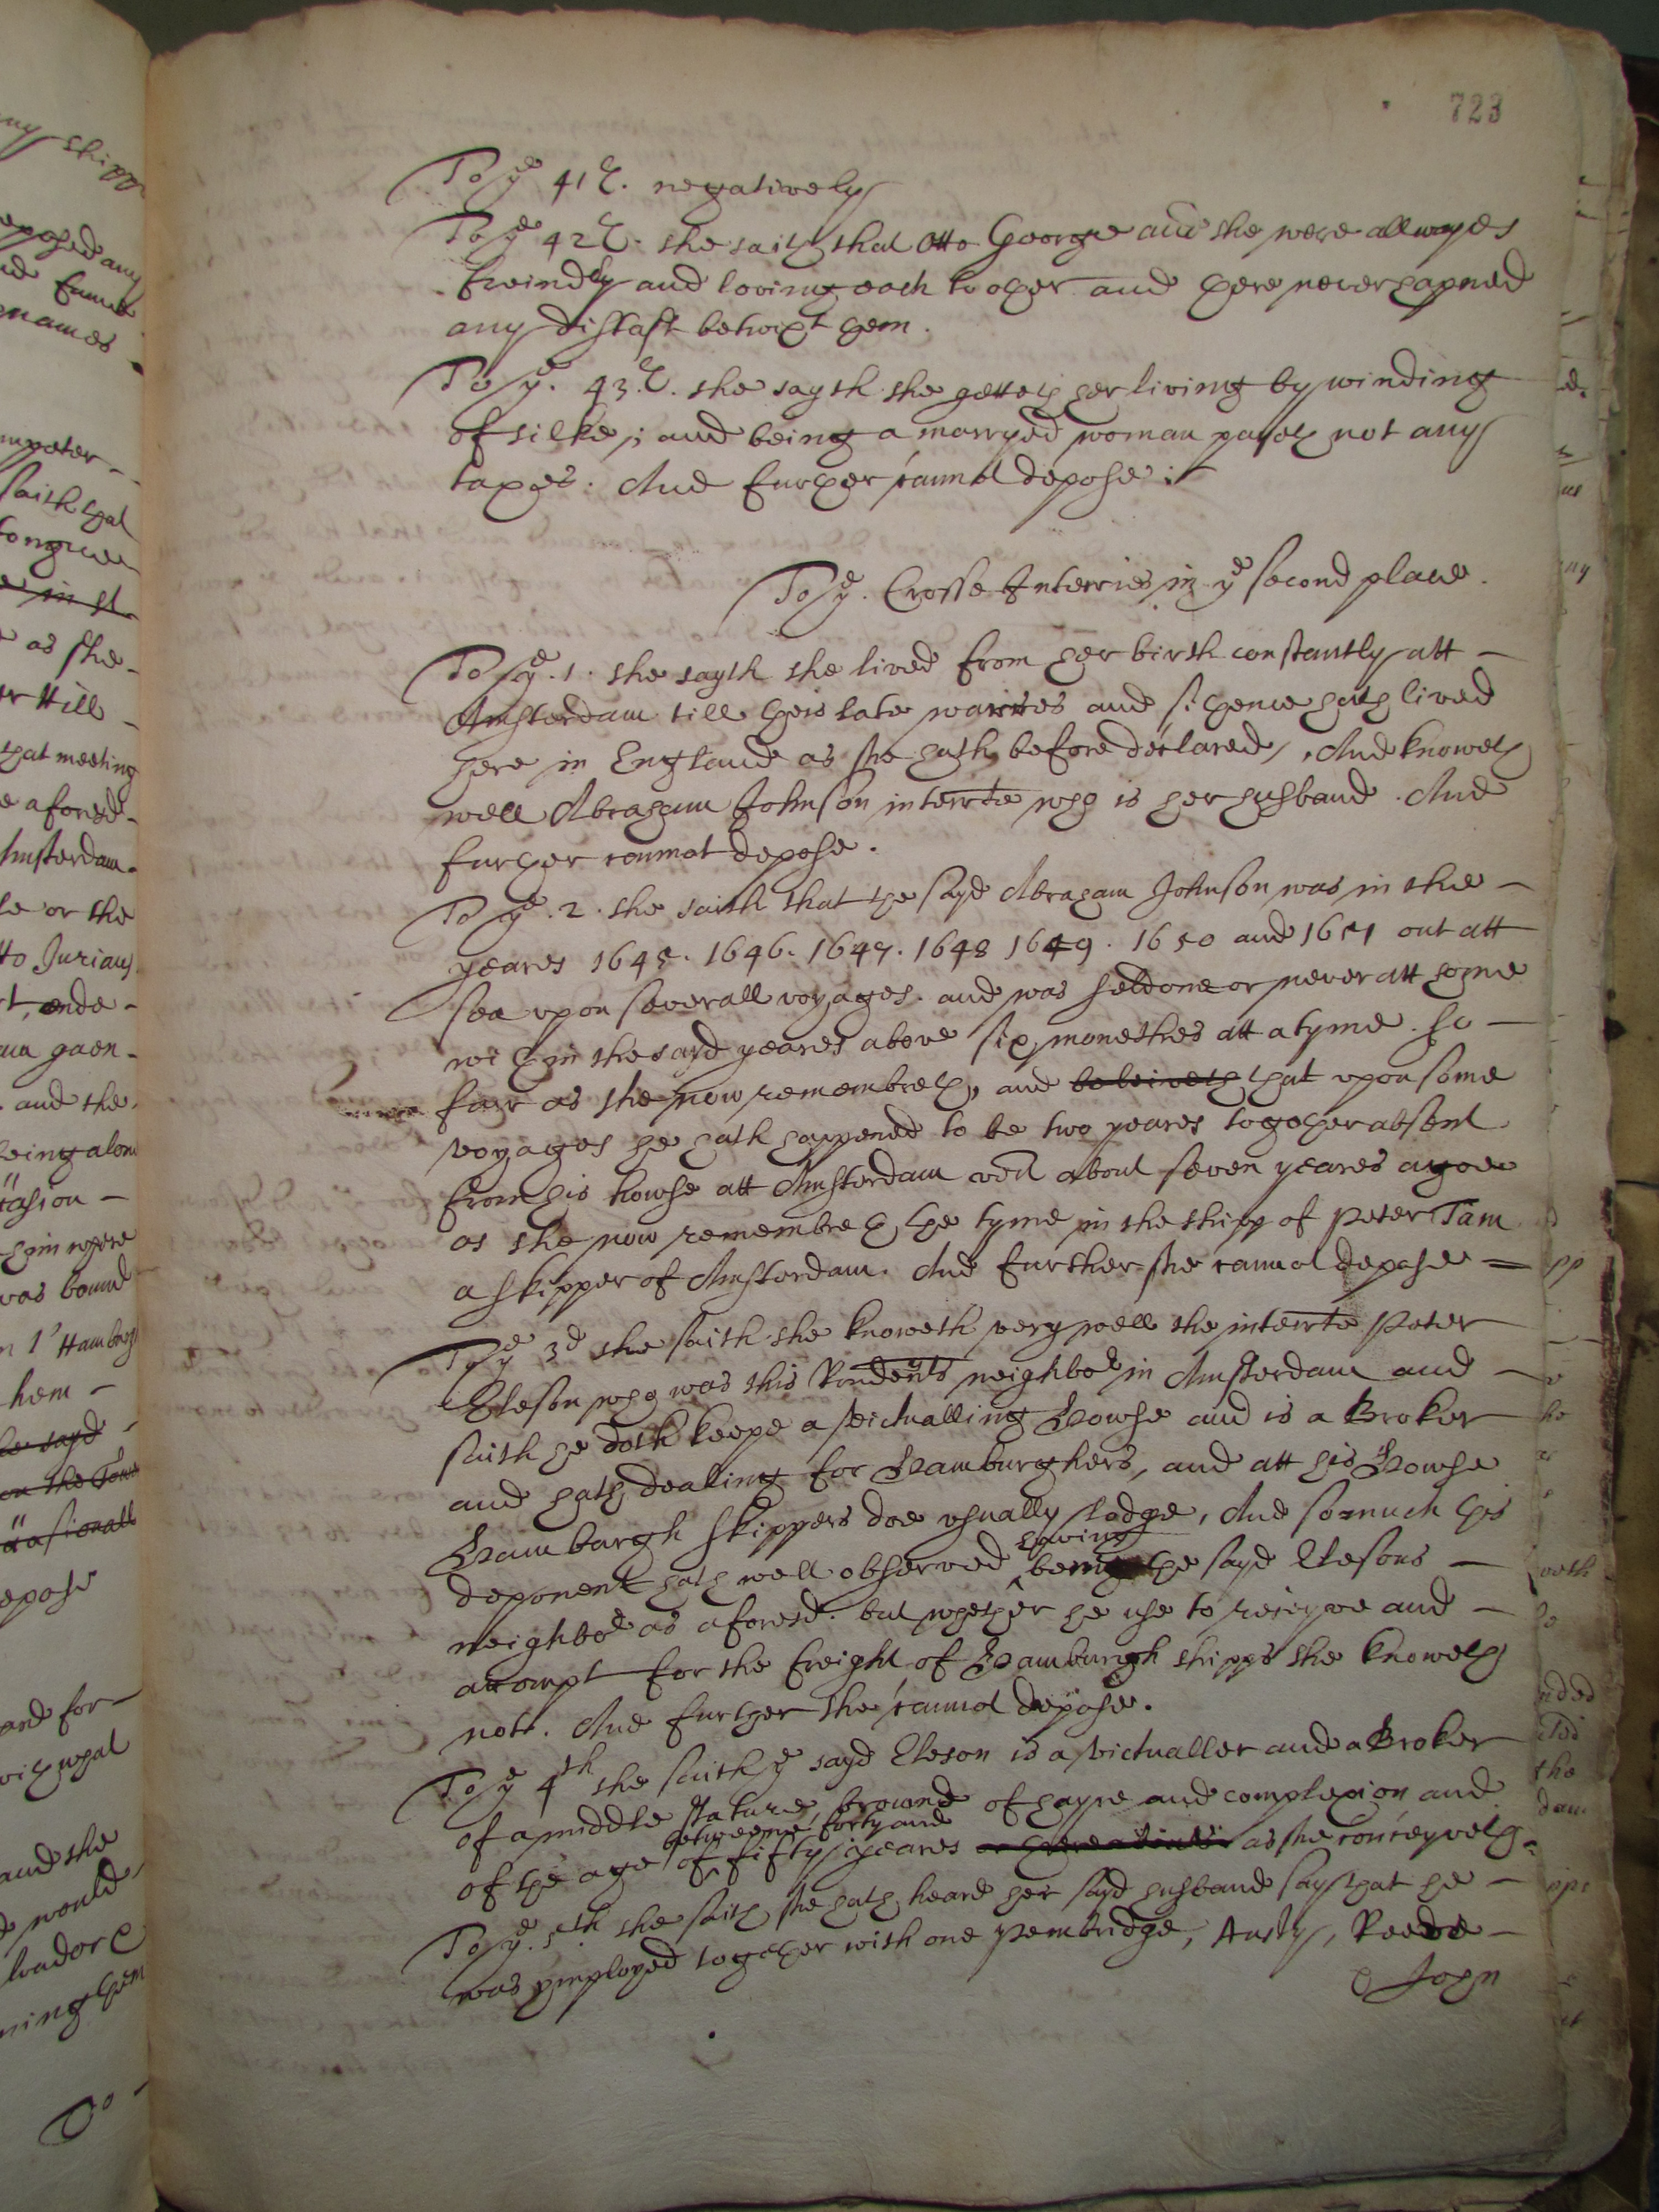 723
To ye 41th. negatively
To ye 42th. she saith that Otto George and she were allwayes
freindly and loving each to other and there never hapned
any distast betwixt them.
To ye. 43th. she sayth she getteth her living by winding
of silke; and being a marryed woman payeth not any
taxes. And further cannot depose.
To ye. Crosse Interries in ye second place.
To ye. 1. she sayth she lived from her birth constantly att -
Amsterdam till theis late warres and sithence hath lived
here in England as she hath before declared, And knoweth
well Abraham Johnson interrte who is her husband. And
further cannot depose.
To ye. 2. she saith that the sayd Abraham Johnson was in the -
yeares 1645. 1646. 1647. 1648 1649. 1650 and 1651 out att
sea upon severall voyages. and was seldome or never att home
within the sayd yeares above six monethes att a tyme. so -
farr as she now remembreth, and beleiveth that upon some
voyages he hath happened to be two yeares together absent
from his howse att Amsterdam and about seven yeares agoe
as she now remembreth the tyme in the shipp of Peter Tam
a skipper of Amsterdam. And further she cannot depose =
To ye 3d she saith she knoweth very well the interrte Peter
Eleson who was this Rendents neighbor in Amsterdam and -
saith he doth keepe a victualling Howse and is a Broker
and hath dealing for Hamburghers, and att his Howse
Hamburgh skippers doe usually lodge, And so much this
deponent hath well observed having being the sayd Elesons -
neighbor as aforesd. but whether he use to receyve and -
accompt for the freight of Hamburgh shipps she knoweth
nott. And further she cannot depose.
To ye 4th she saith ye sayd Eleson is a victualler and a Broker
of a middle stature, browne of hayre and complexion and
of the age of betweene forty and fifty yeares or thereabouts as she conceyveth.
To ye. 5th she saith she hath heard her sayd husband say that he -
was employed together with one Pembridge, Austy, Reede -
John